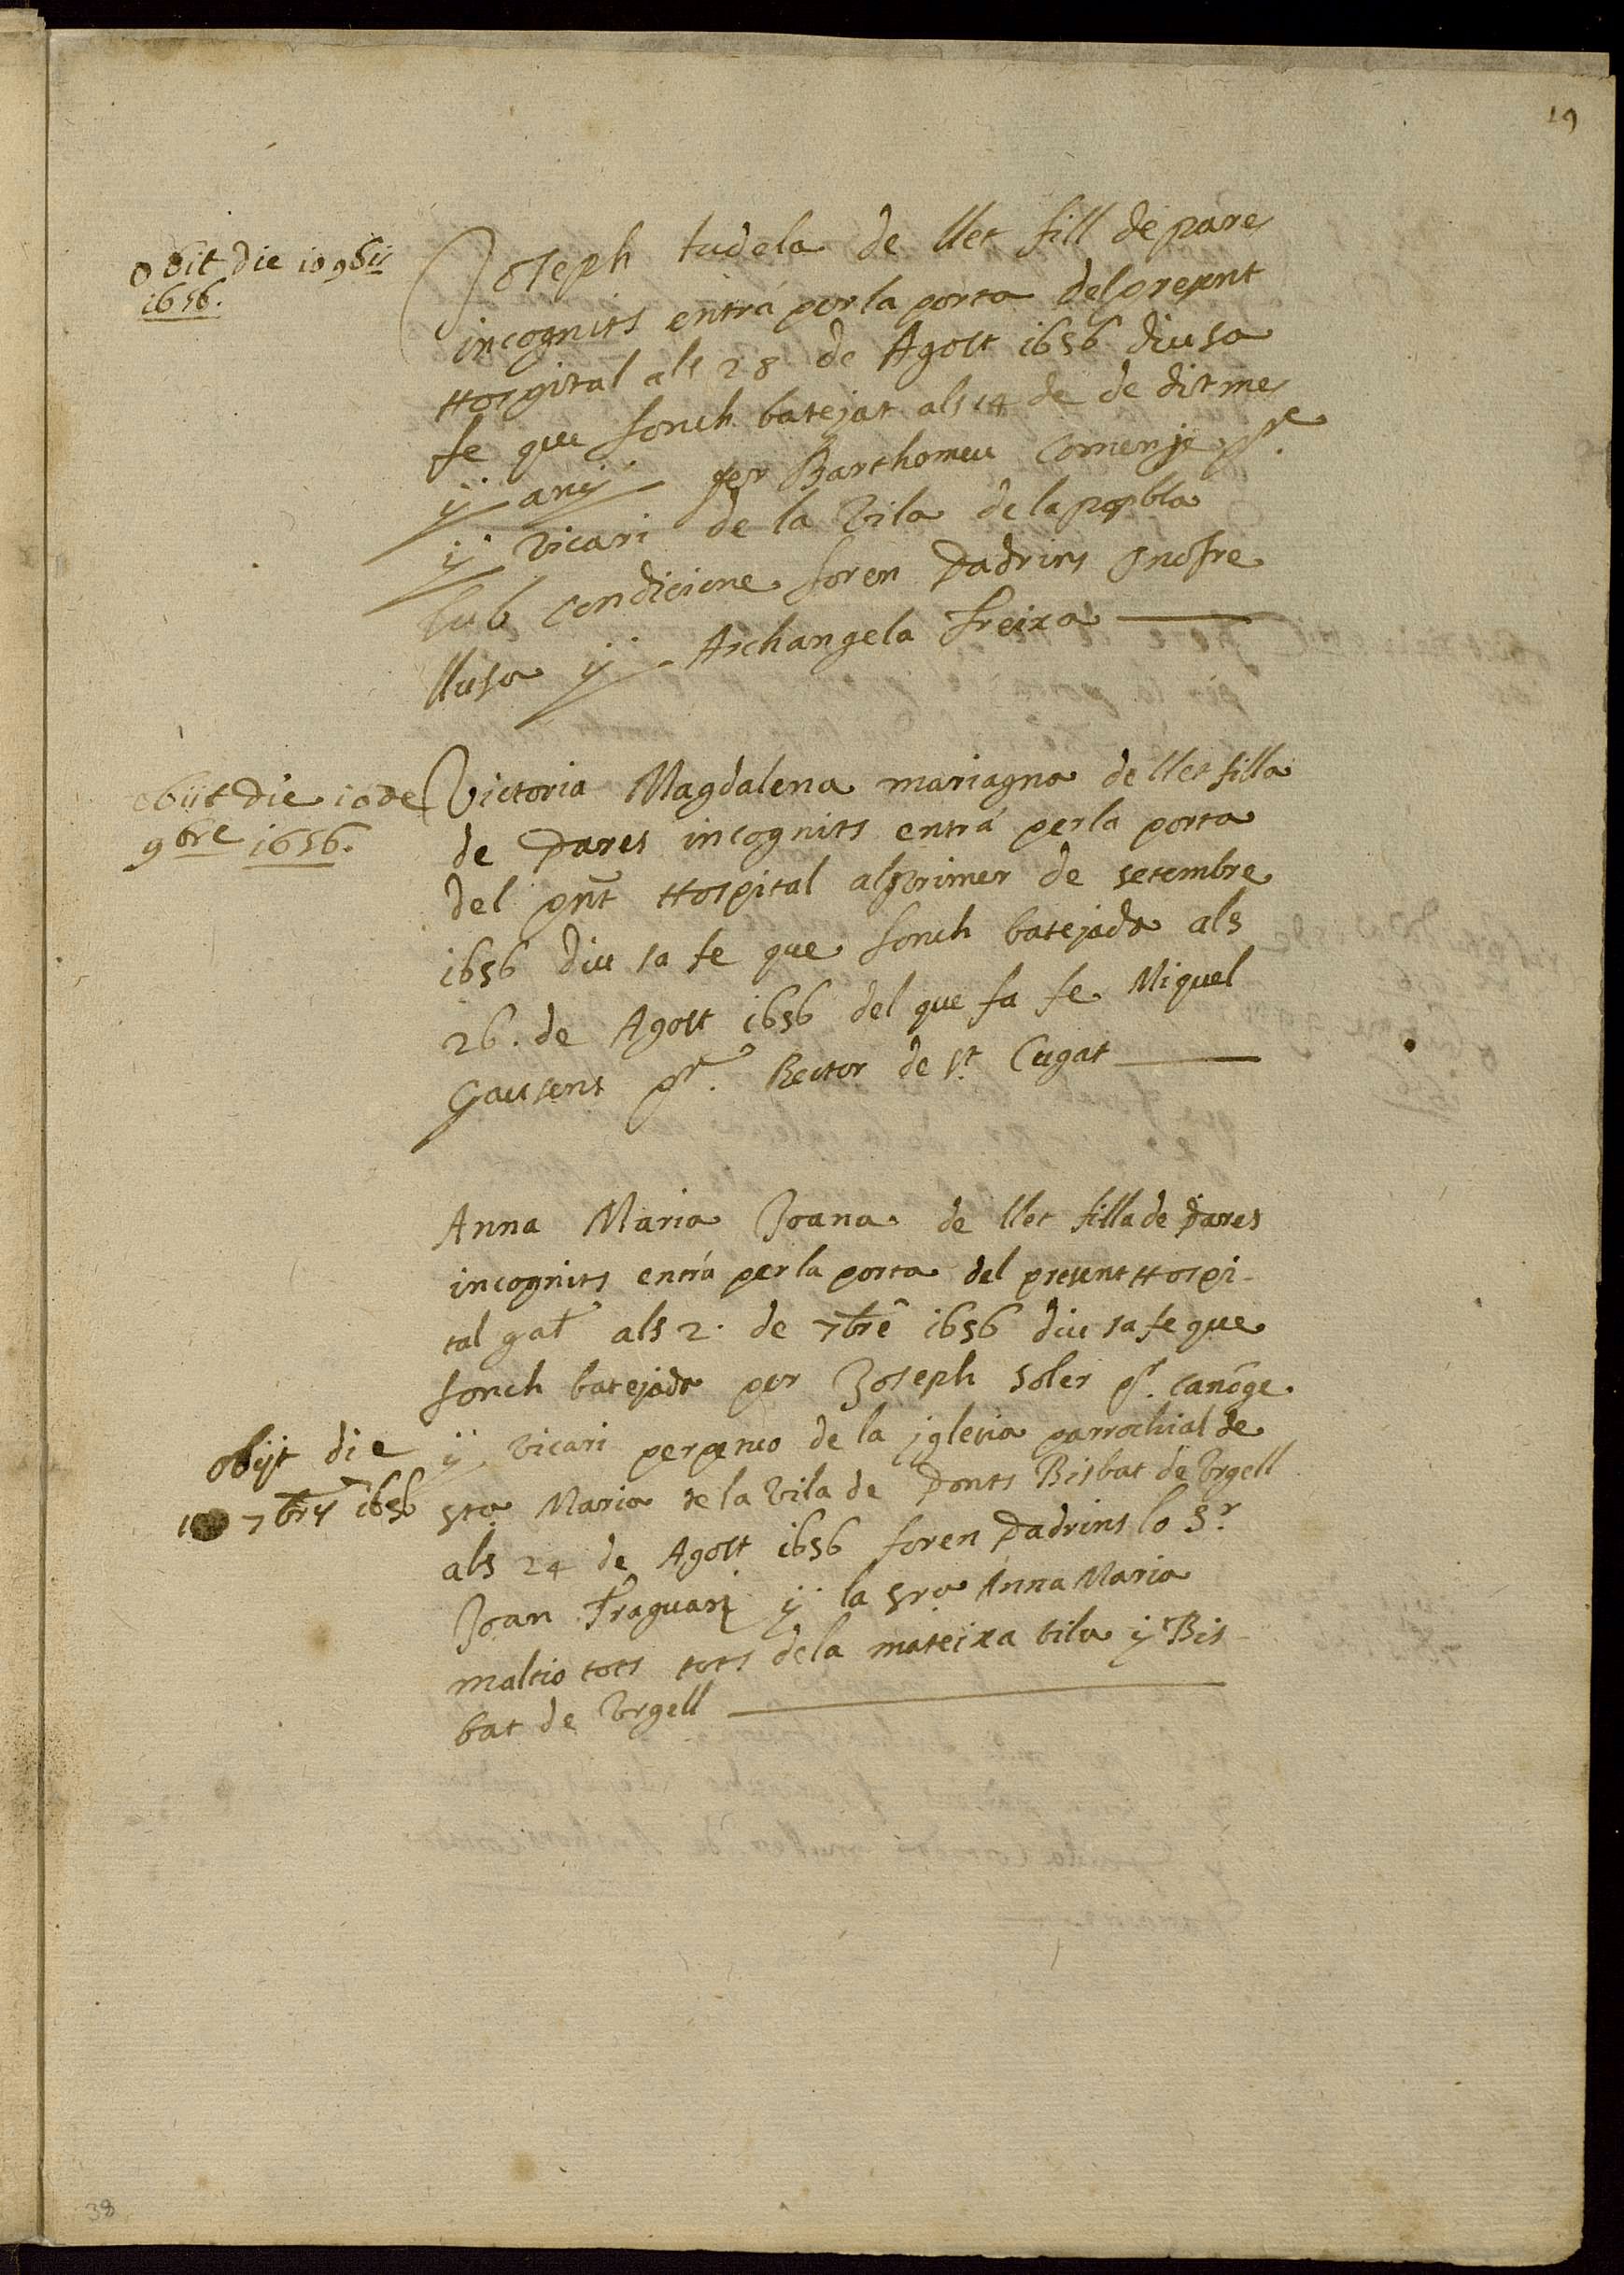 19
obit die 10 9bis
1656.
Joseph tudela de llet fill de pares
incognits entrá per la porta del presnt
Hospital als 28 de Agost 1656 diu sa
fe que fonch batejat als 14 de de dit mes
ÿ anÿ per Barthomeu Comenje pre.
ÿ vicari de la vila de la pobla
sub condicione foren Padrins Onofre
llusa ÿ Archangela freixa
obiit die 10 de
9bre 1656.
Victoria Magdalena mariagna de llet filla
de Pares incognits entrá per la porta
del pnt Hospital al primer de setembre
1656 diu sa fe que fonch batejada als
26. de Agost 1656 del que fa fe Miquel
Gausent pr. Rector de St. Cugat
Anna Maria Joana de llet filla de Pares
incognits entrá per la porta del present Hospi-
tal gal als 2. de 7bre 1656 diu sa fe que
fonch batejada per Joseph Soler pr. canoge
obijt die
7bry 1656
ÿ vicari perpetuo de la jglesia parrochial de
Sta Maria de la vila de Ponts Bisbat de Vrgell
als 24 de Agost 1656 foren Padrins lo Sr.
Joan ÿ la Sra Anna Maria
tots tots de la mateixa vila ÿ Bis-
bat de Vrgell
38